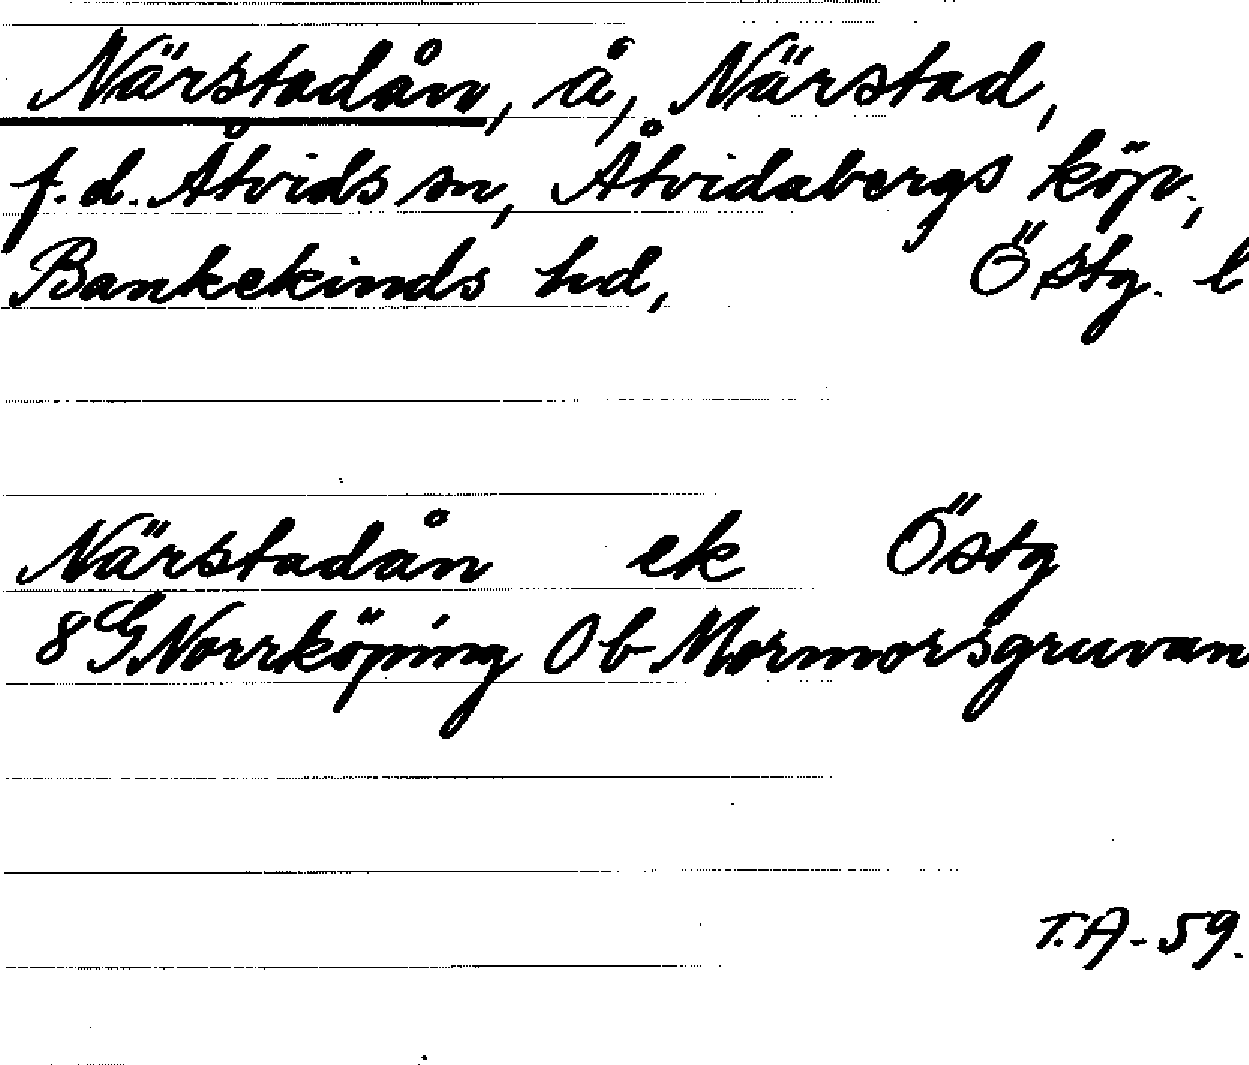 Närstadån, å, Närstad,
f.d. Åtvids sn, Åtvidabergs köp.,
Bankekinds hd, Östg. l
Närstadån ek Östg
8G Norrköping 0b Mormorsgruvan
T.A-59.